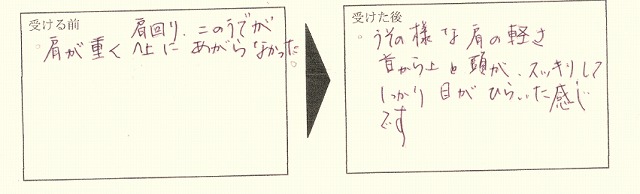 受ける前
肩回り、二のうでが
肩が重く 上に あがらなかった。
受けた後
うその様な肩の軽さ
首から上と頭が、スッキリして
しっかり目がひらいた感じ
です